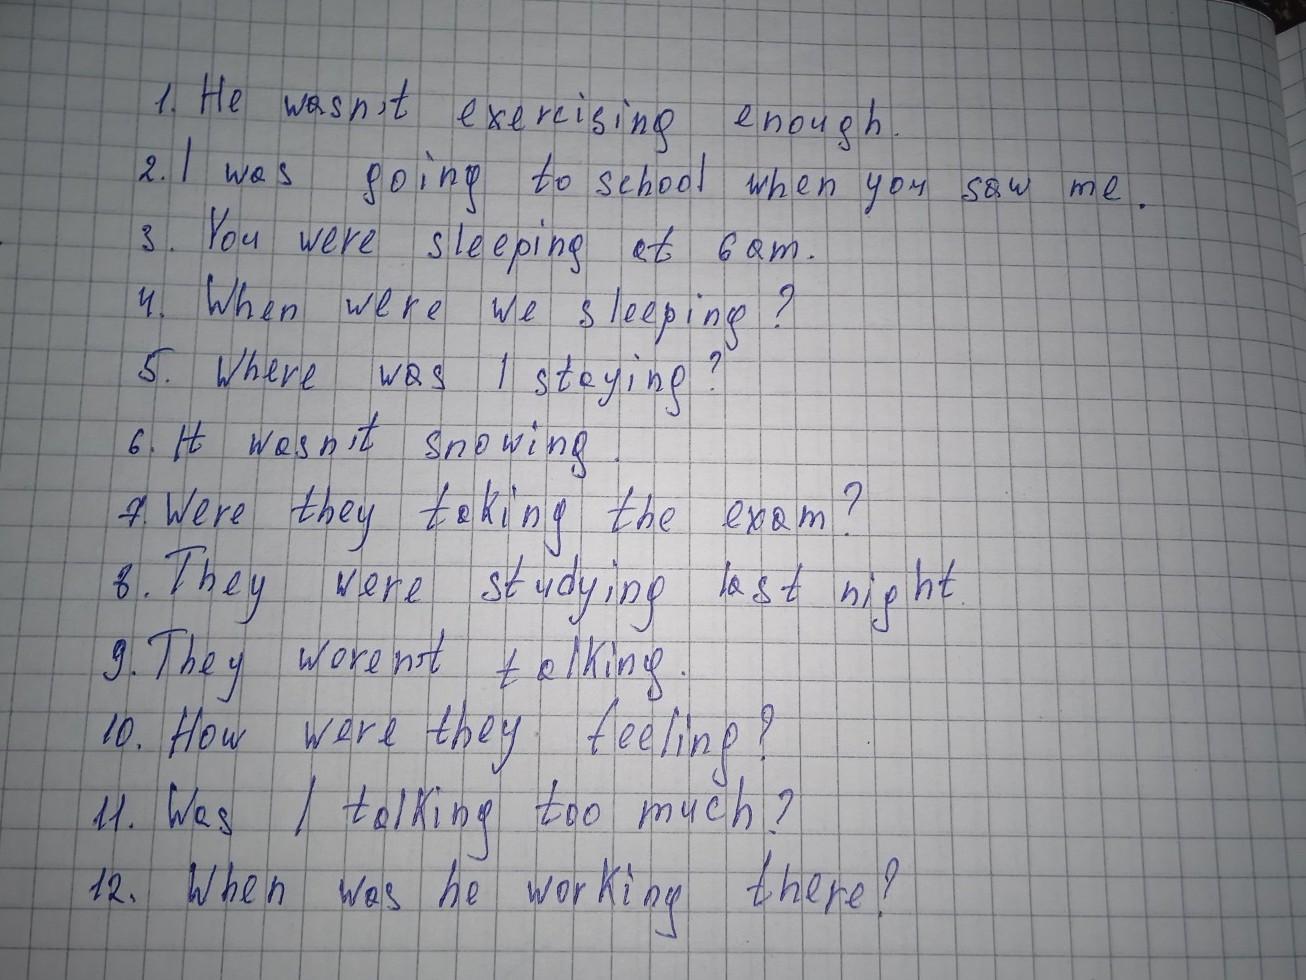 1. He wasn't exercising enough.
2. I was going to school when you saw me.
3. You were sleeping at 6am.
4. When were we sleeping?
5. Where was I staying?
6. It wasn't snowing.
7. Were they taking the exam?
8. They were studying last night.
9. They weren't talking.
10. How were they feeling?
11. Was I talking too much?
12. When was he working there?